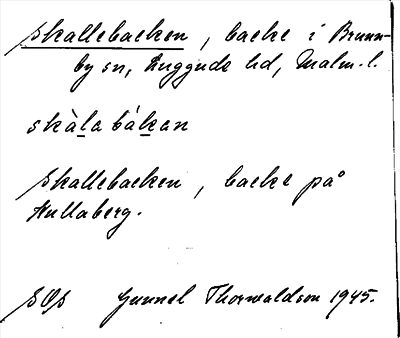 Skallebacken, backe i Brunn-
by sn, Luggude hd, Malm. l.
skàla bákan
Skallebacken, backe på
Kullaberg.
SOS Gunnel Thorwaldson 1945.